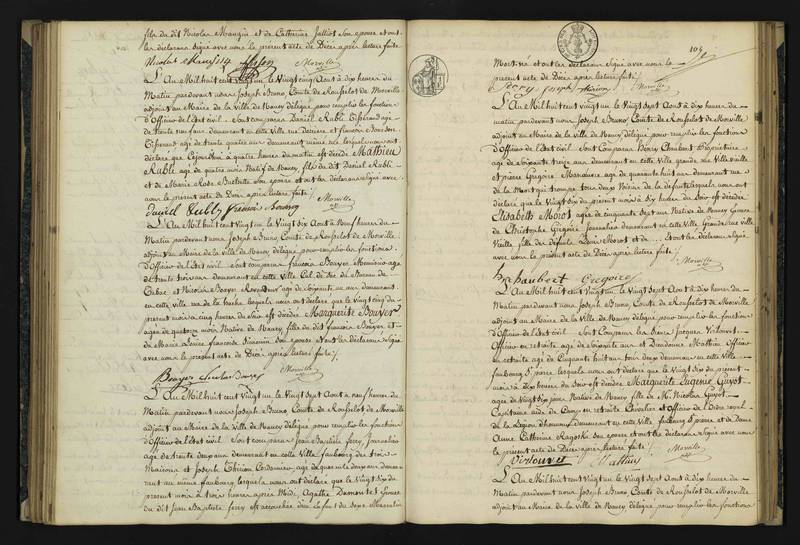 fils du dit Nicolas Mangin et de Catherine Jalliot son epouse et ont
les déclarans signé avec nous le present acte de Décès après lecture faite
Nicolas Mangin
Morville
L'An Mil huit cent vingt un le Vingt cinq Aout à dix heures du
Matin pardevant nous Joseph Bruno, Comte de Rousselot de Morville
adjoint au Maire de la Ville de Nancy délégué pour remplir les fonctions
d'Officier de l'état civil. Sont comparus Daniel Rublé Tisserand agé
de trente six ans demeurant en cette Ville rue derriere et francois Bourson
Tisserand agé de trente quatre ans demeurant même rue lesquels nous ont
déclaré que Cejourdhui à quatre heures du matin est décédé Mathieu
Rublé agé de quatre mois Natif de Nancy, fils du dit Daniel Rublé
et de Marie Rose son epouse et ont les déclarans signé avec
nous le present acte de Décès après lecture faite /.
Daniel Rublé francois Bourson
Morville
L'An Mil huit Cent Vingt un le Vingt six Aout à Neuf heures du
Matin pardevant nous Joseph Bruno, Comte de Rousselot de Morville
adjoint au Maire de la Ville de Nancy délégué pour remplir les fonctions
d'Officier de l'état Civil. Sont comparus francois Bouyer Menuisier agé
de trente trois ans demeurant en cette Ville Cul de Sac du Bureau de
Tabac et Nicolas Boyer Revendeur agé de soixante un ans demeurant
en cette ville rue de la hache lesquels nous ont déclaré que le Vingt cinq du
present mois à cinq heures du soir est décédée Marguerite Bouyer
agée de quatorze mois Native de Nancy fille du dit francois Bouyer et
de Marie Louise francoise Simonin son epouse et ont les déclarans signé
avec nous le present acte de Décès après lecture faite /.
Bouyer
Morville
L'An Mil huit Cent Vingt un le Vingt sept Aout à neuf heures du
Matin pardevant nous Joseph Bruno, Comte de Rousselot de Morville
adjoint au Maire de la Ville de Nancy délégué pour remplir les fonctions
d'Officier de l'état civil. Sont comparus Jean Baptiste ferry Journalier
agé de trente deux ans demeurant en cette Ville faubourg des trois
Maisons et Joseph Thirion Cordonnier agé de quarante deux ans demeu-
rant au même faubourg lesquels nous ont déclaré que le Vingt six du
present mois à trois heures après Midi Agathe femme
du dit Jean Baptiste ferry est accouchée d'un Enfant du sexe Masculin
109
Mort né et ont les déclarans signé avec nous le
present acte de Décès après lecture faite /.
ferry Joseph thirion
Morville
L'An Mil huit cent vingt un le Vingt sept Aout à dix heures du
matin pardevant nous Joseph Bruno, Comte de Rousselot de Morville
adjoint au Maire de la Ville de Nancy délégué pour remplir les fonctions
d'Officier de l'état civil. Sont Comparus Henry Chaubert Propriétaire
agé de soixante treize ans demeurant en cette Ville grande rue Ville vieille
et pierre Gregoire Manoeuvre agé de quarante huit ans demeurant rue
de la Monnaye tous deux Voisins de la défunte lesquels nous ont
déclaré que le Vingt six du present mois à dix heures du Soir est décédée
Elisabeth Morot agée de cinquante sept ans Native de Nancy femme
de Christophe Gregoire Journalier demeurant en cette Ville Grande rue Ville
Vieille, fille des défunts Louis Morot et de ... Et ont les déclarans signé
avec nous le present acte de Décès après lecture faite /.
Morville
hy chaubert Gregoire
L'An Mil huit cent Vingt un le Vingt sept Aout à dix heures du
Matin pardevant nous Joseph Bruno, Comte de Rousselot de Morville
adjoint au Maire de la Ville de Nancy délégué pour remplir les fonctions
d'Officier de l'état civil. Sont Comparus les Sieurs Jacques Virlouvet
Officier en retraite agé de soixante ans et Dieudonné Mathieu Officier
en retraite agé de Cinquante huit ans tous deux demeurant en cette Ville
faubourg St pierre lesquels nous ont déclaré que le Vingt six du present
mois à dix heures du soir est décédée Marguerite Eugenie Guyot
agée de Vingt six jours Native de Nancy fille de Mr Nicolas Guyot
Capitaine aide de Camp en retraite Chevalier et Officier de l'Ordre royal
de la Légion d'honneur demeurant en cette Ville faubourg St pierre et de Dame
Anne Catherine Ragoski son epouse et ont les déclarans signé avec nous
le present acte de Décès après lecture faite /.
Virlouvet Mathieu
Morville
L'An Mil huit cent Vingt un le Vingt sept Aout à dix heures du
Matin pardevant nous Joseph Bruno, Comte de Rousselot de Morville
adjoint au Maire de la Ville de Nancy délégué pour remplir les fonctions